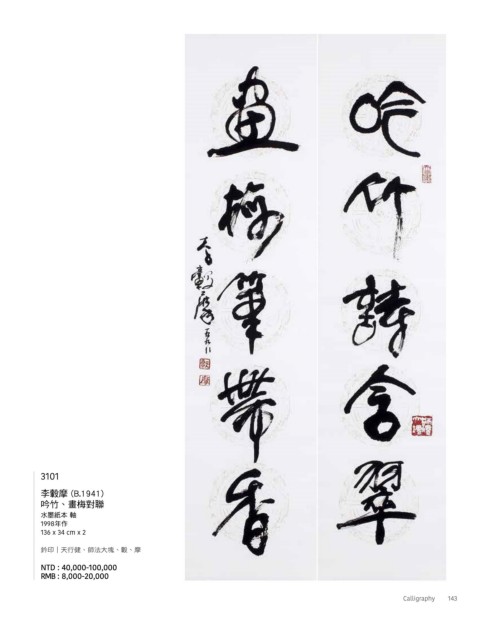 吟竹詩含翠
畫梅筆帶香
李轂摩
3101
李轂摩（B.1941）
吟竹、畫梅對聯
水墨紙本 軸
1998年作
136 x 34 cm x 2
鈐印｜天行健、師法大塊、轂、摩
NTD : 40,000-100,000
RMB : 8,000-20,000
Calligraphy 143